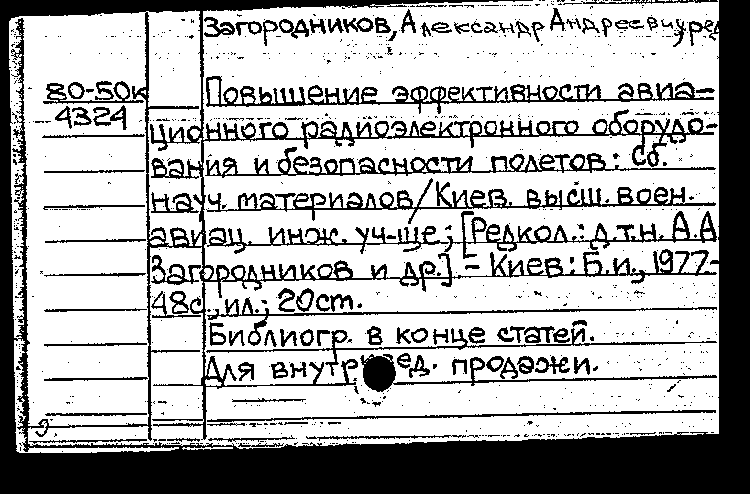 Загородников, Александр Андреевич, ред
80-50к
4324
Повышение эффективности авиа-
ционного радиоэлектронного оборудо-
вания и безопасности полетов: Сб.
науч. материалов/Киев. высш. воен.
авиац. инж. уч-ще; [Редкол.: д.т.н. А.А
Загородников и др.]. - Киев: Б.и., 1977.-
48с., ил.; 20ст.
Библиогр. в конце статей.
Для внутривед. продажи.